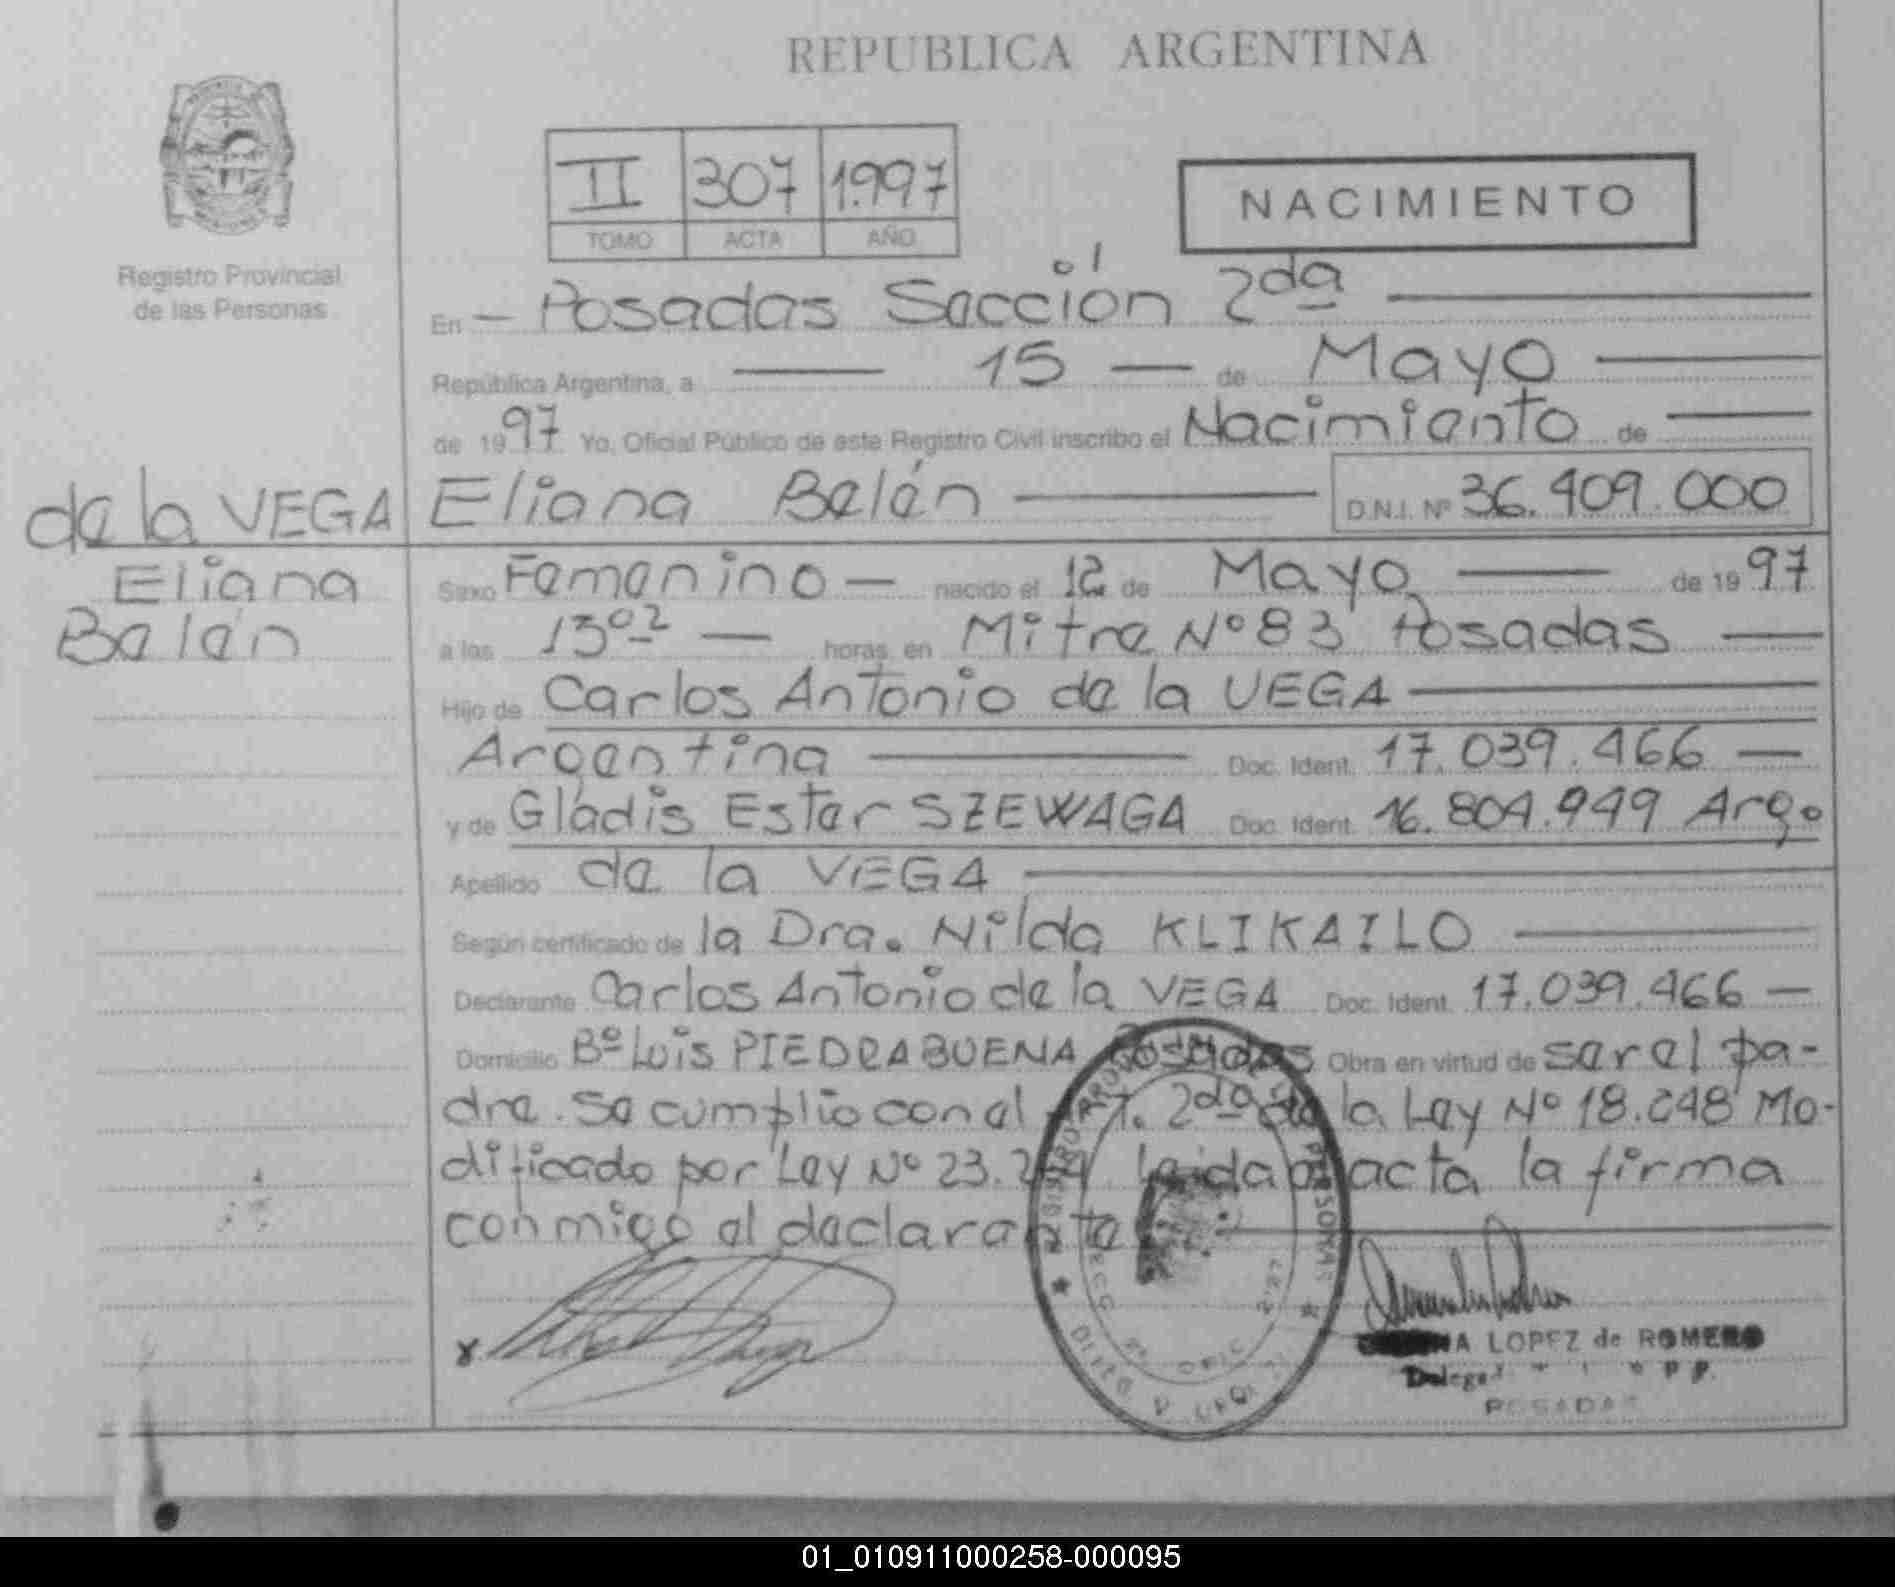 REPUBLICA ARGENTINA
II 307 1.997
TOMO ACTA AÑO
NACIMIENTO
Registro Provincial
de las Personas
En - Posadas Sección 2da
República Argentina, a 15 de Mayo
de 1997 Yo, Oficial Público de este Registro Civil inscribo el Nacimiento de
de la VEGA Eliana Belén D.N.I. Nº 36.409.000
Eliana
Belén
Sexo Femenino nacido el 12 de Mayo de 1997
a las 13º² horas, en Mitre Nº 83 Posadas
Hijo de Carlos Antonio de la VEGA
Argentina Doc. Ident. 17.039.466
y de Gladis Ester SZEWAGA Doc. Ident. 16.804.949 Arg.
Apellido de la VEGA
Según certificado de la Dra. Nilda KLIKAILO
Declarante Carlos Antonio de la VEGA Doc. Ident. 17.039.466
Domicilio Bº Luis PIEDRABUENA Posadas Obra en virtud de ser el pa-
dre. Se cumplio con el 2da de la Ley Nº 18.248 Mo-
dificado por Ley Nº 23. Leida el acta, la firma
conmigo el declarante
LOPEZ de ROMERO
POSADAS
01_010911000258-000095